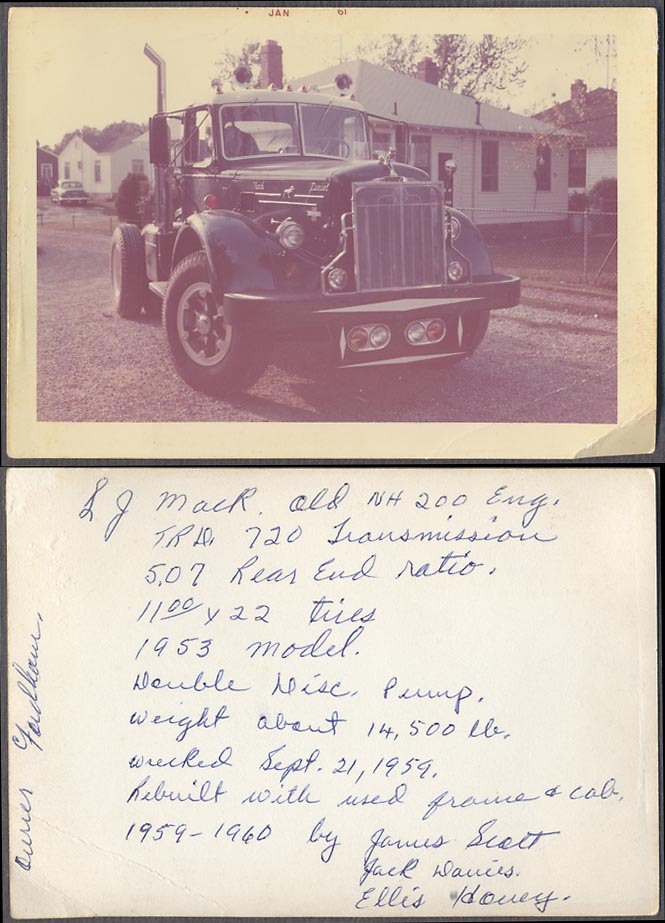 JAN 61
Mack Diesel
L J Mack. old NH 200 Eng.
TRD. 720 Transmission
5.07 Rear End ratio.
11 00 x 22 tires
1953 model.
Double Disc. Pump.
weight about 14,500 lb.
wrecked Sept. 21, 1959.
Rebuilt with used frame & cab.
1959-1960 by James Scott
Jack Davies.
Ellis Honey.
Owner Fordham.